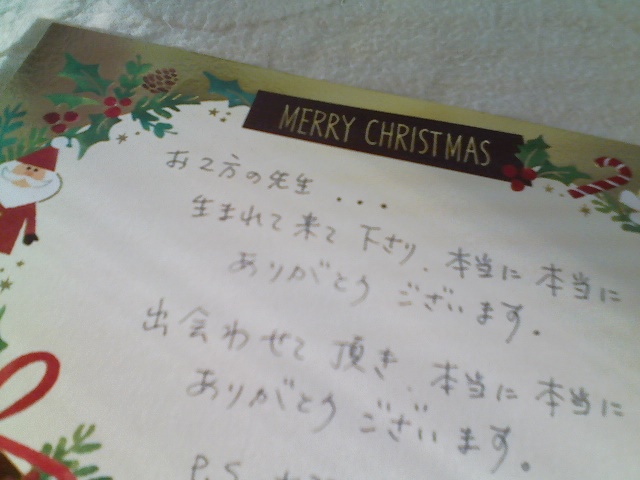 MERRY CHRISTMAS
お2方の先生...
生まれて来て下さり、本当に本当に
ありがとうございます。
出会わせて頂き、本当に本当に
ありがとうございます。
P.S